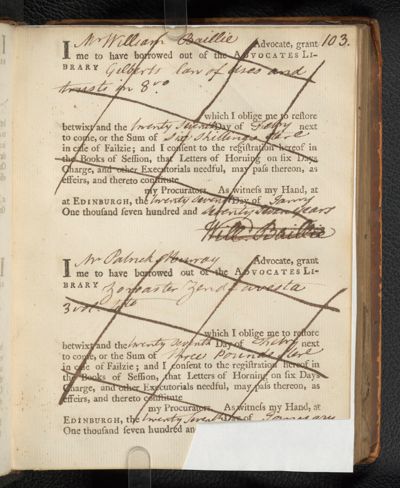 103.
I Mr William Baillie Advocate, grant
me to have borrowed out of the ADVOCATES LI-
BRARY Gilberts law of uses and
trusts in 8vo
which I oblige me to reſtore
betwixt and the twenty seventh Day of Febry next
to come, or the Sum of Six Shillings Ster
in caſe of Failzie; and I conſent to the regiſtration hereof in
the Books of Seſſion, that Letters of Horning on ſix Days
Charge, and other Executorials needful, may paſs thereon, as
effeirs, and thereto conſtitute
my Procurators. As witneſs my Hand, at
at EDINBURGH, the twenty seventh Day of Janry
One thouſand ſeven hundred and seventy years
Will: Baillie
I Mr Patrick Murray Advocate, grant
me to have borrowed out of the ADVOCATES LI-
BRARY Zoroaster Zend avesta
3 vol: 4to
which I oblige me to reſtore
betwixt and the twenty seventh Day of Febry next
to come, or the Sum of Three Pounds Ster
in caſe of Failzie; and I conſent to the regiſtration hereof in
the Books of Seſſion, that Letters of Horning on ſix Days
Charge, and other Executorials needful, may paſs thereon, as
effeirs, and thereto conſtitute
my Procurators. As witneſs my Hand, at
EDINBURGH, the twenty seventh Day of January
One thouſand ſeven hundred an